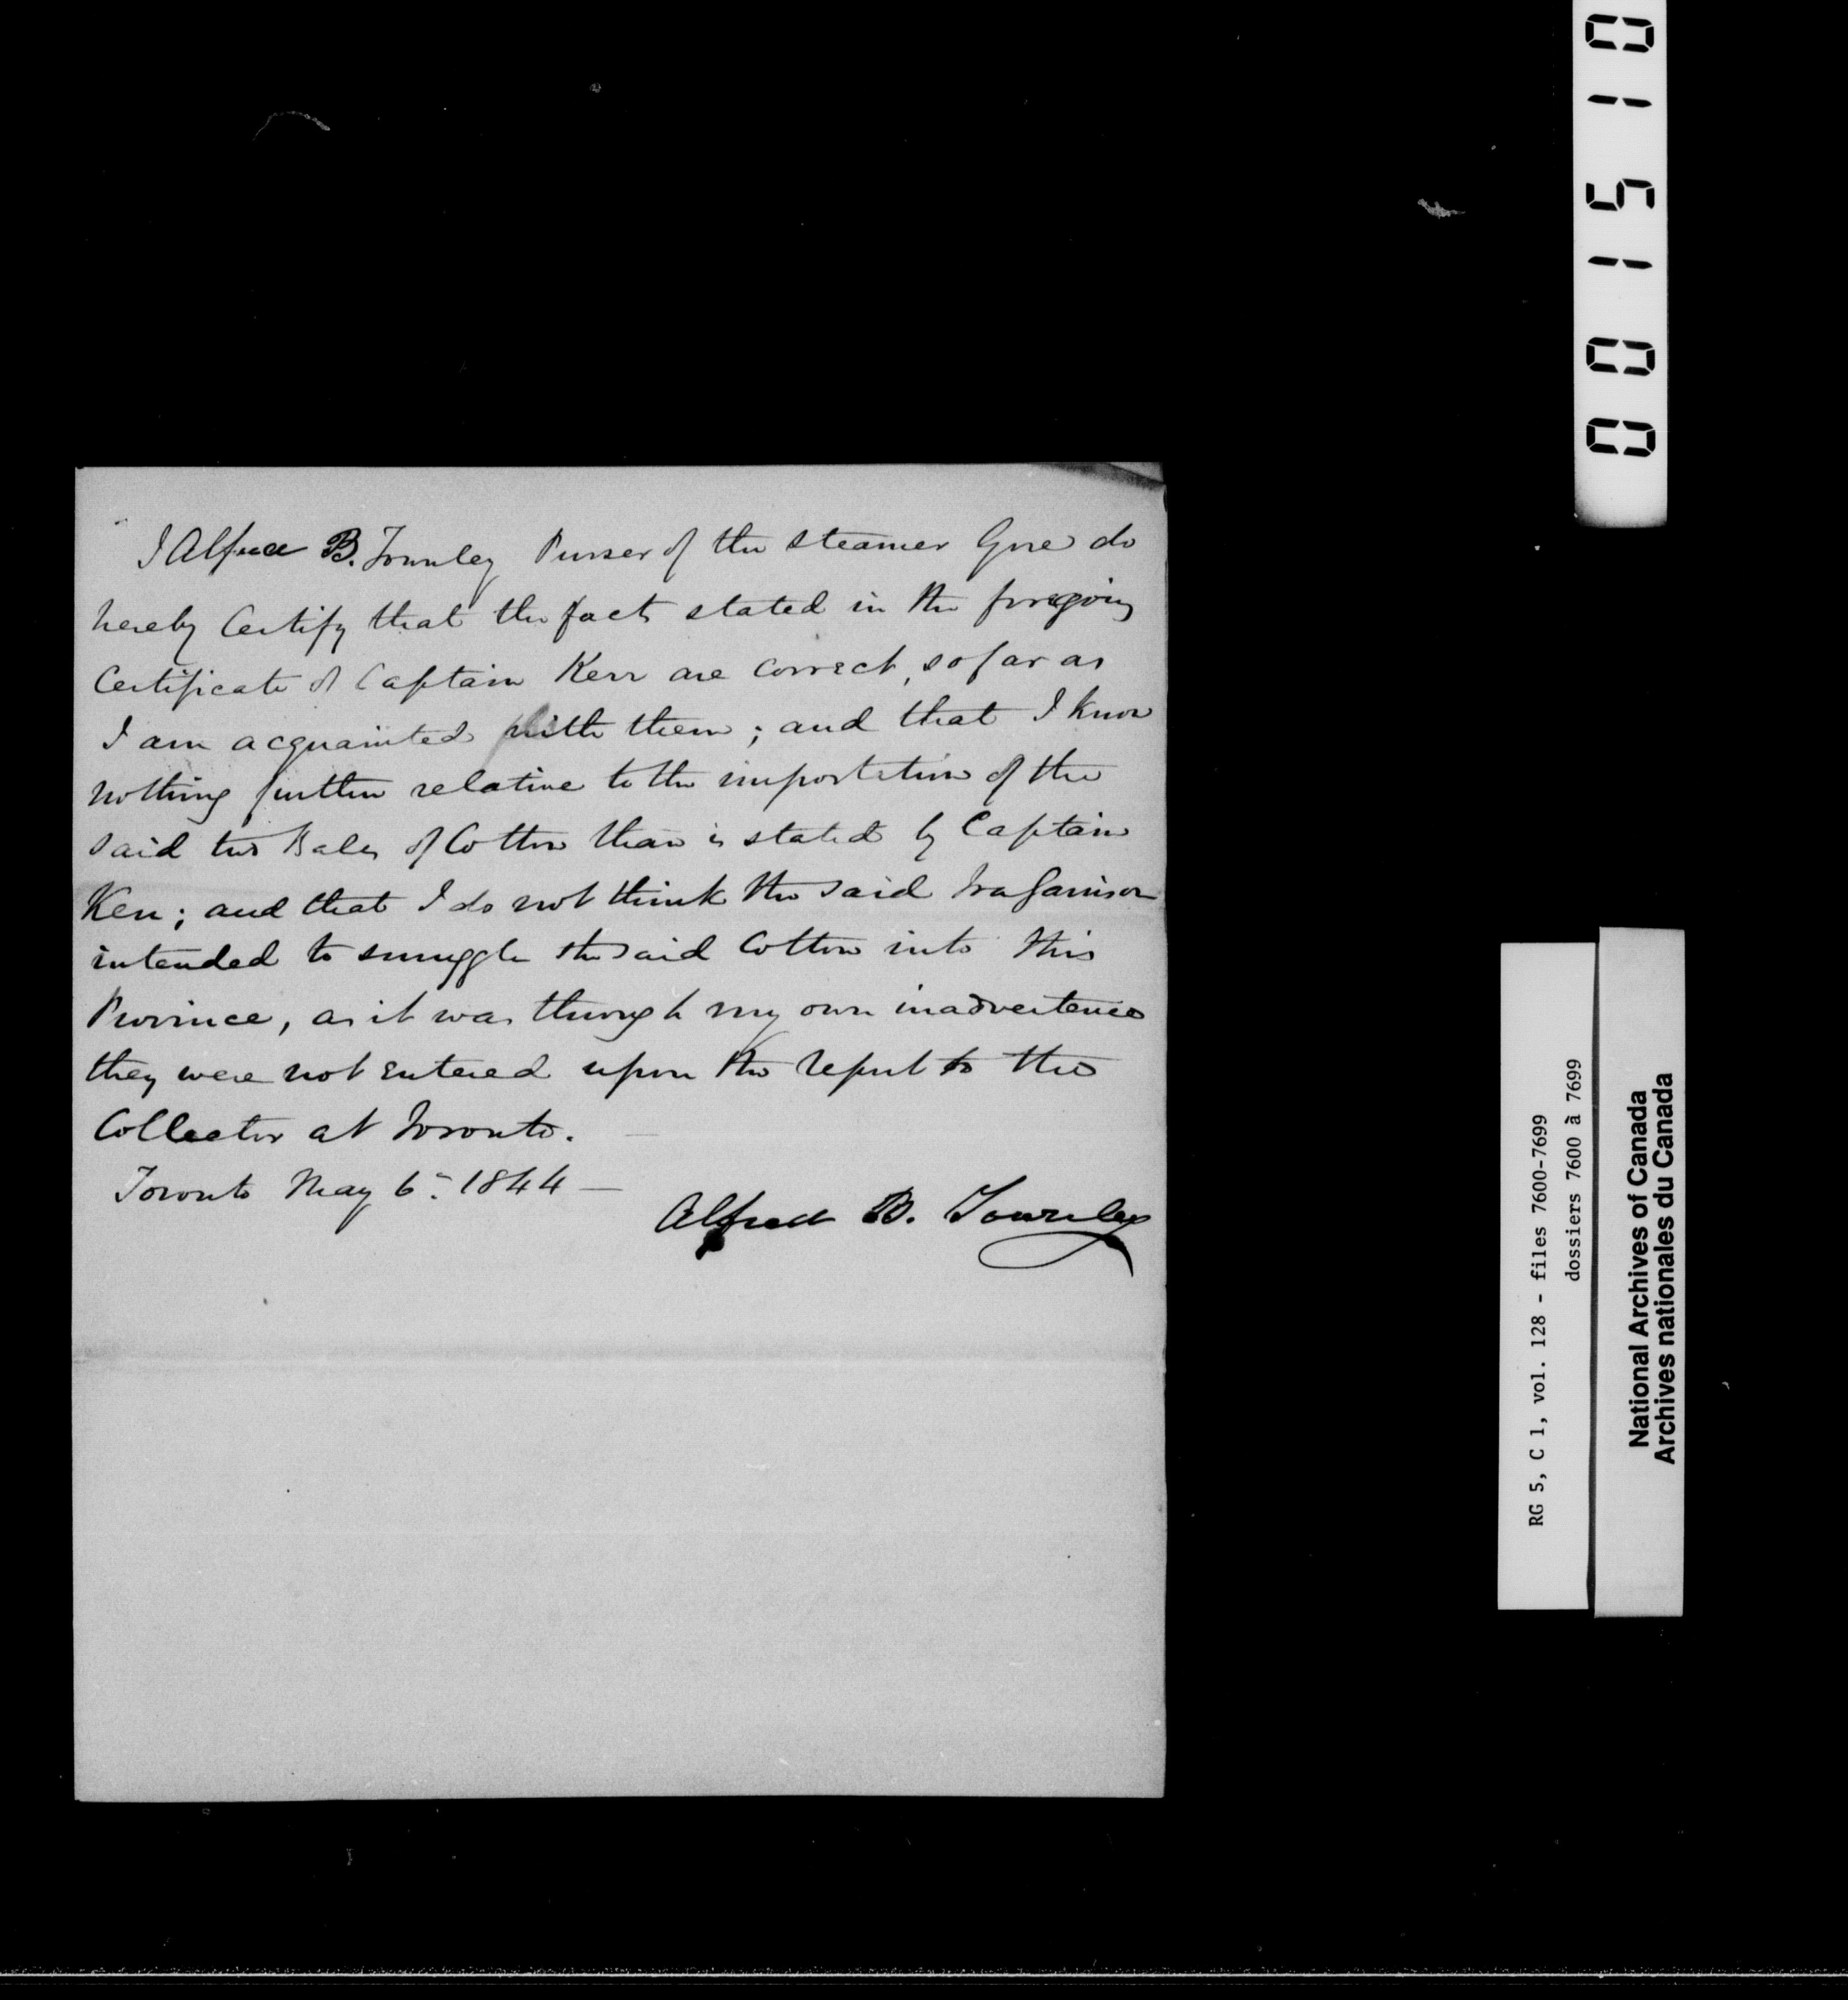 I Alfred B. Townley Purser of the Steamer Gore do
hereby Certify that the facts stated in the foregoing
Certificate of Captain Kerr are correct, so far as
I am acquainted with them; and that I know
nothing further relative to the importation of the
said two Bales of Cotton than is stated by Captain
Kerr; and that I do not think the said Ira Garrison
intended to smuggle the said Cotton into this
Province, as it was through my own inadvertence
they were not entered upon the report to the
Collector at Toronto.
Toronto May 6th 1844 —
Alfred B. Townley
001510
RG 5, C 1, vol. 128 - files 7600-7699
dossiers 7600 à 7699
National Archives of Canada
Archives nationales du Canada